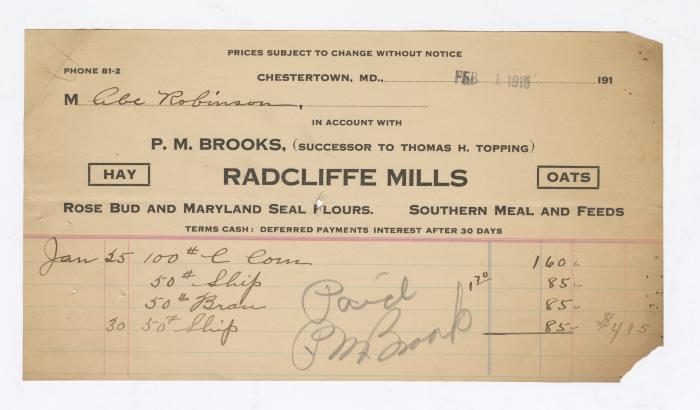 PRICES SUBJECT TO CHANGE WITHOUT NOTICE
PHONE 81-2
CHESTERTOWN, MD., FEB 1 1915 191
M Abe Robinson,
IN ACCOUNT WITH
P. M. BROOKS, (SUCCESSOR TO THOMAS H. TOPPING)
HAY RADCLIFFE MILLS OATS
ROSE BUD AND MARYLAND SEAL FLOURS. SOUTHERN MEAL AND FEEDS
TERMS CASH: DEFERRED PAYMENTS INTEREST AFTER 30 DAYS
Jan 25 100# C Corn 160
50# Ship 1 70 85
50# Bran 85
30 50# Ship 85 $415
Paid
P M Brooks